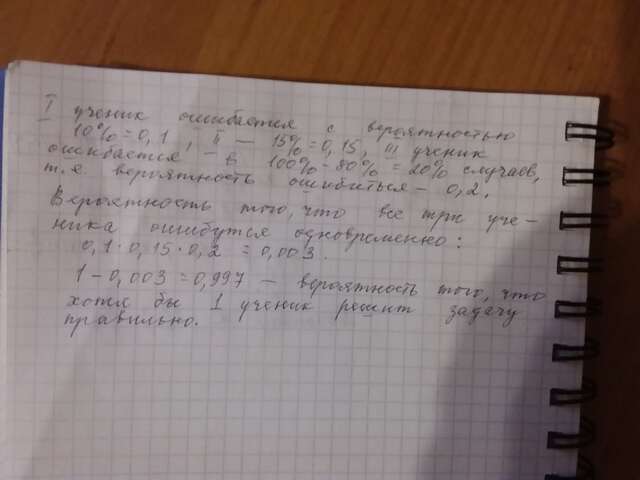 I ученик ошибается с вероятностью
10% = 0,1, II — 15% = 0,15, III ученик
ошибается – в 100% - 80% = 20% случаев,
т.е. вероятность ошибиться – 0,2.
Вероятность того, что все три уче-
ника ошибутся одновременно:
0,1 · 0,15 · 0,2 = 0,003.
1 – 0,003 = 0,997 – вероятность того, что
хотя бы 1 ученик решит задачу
правильно.